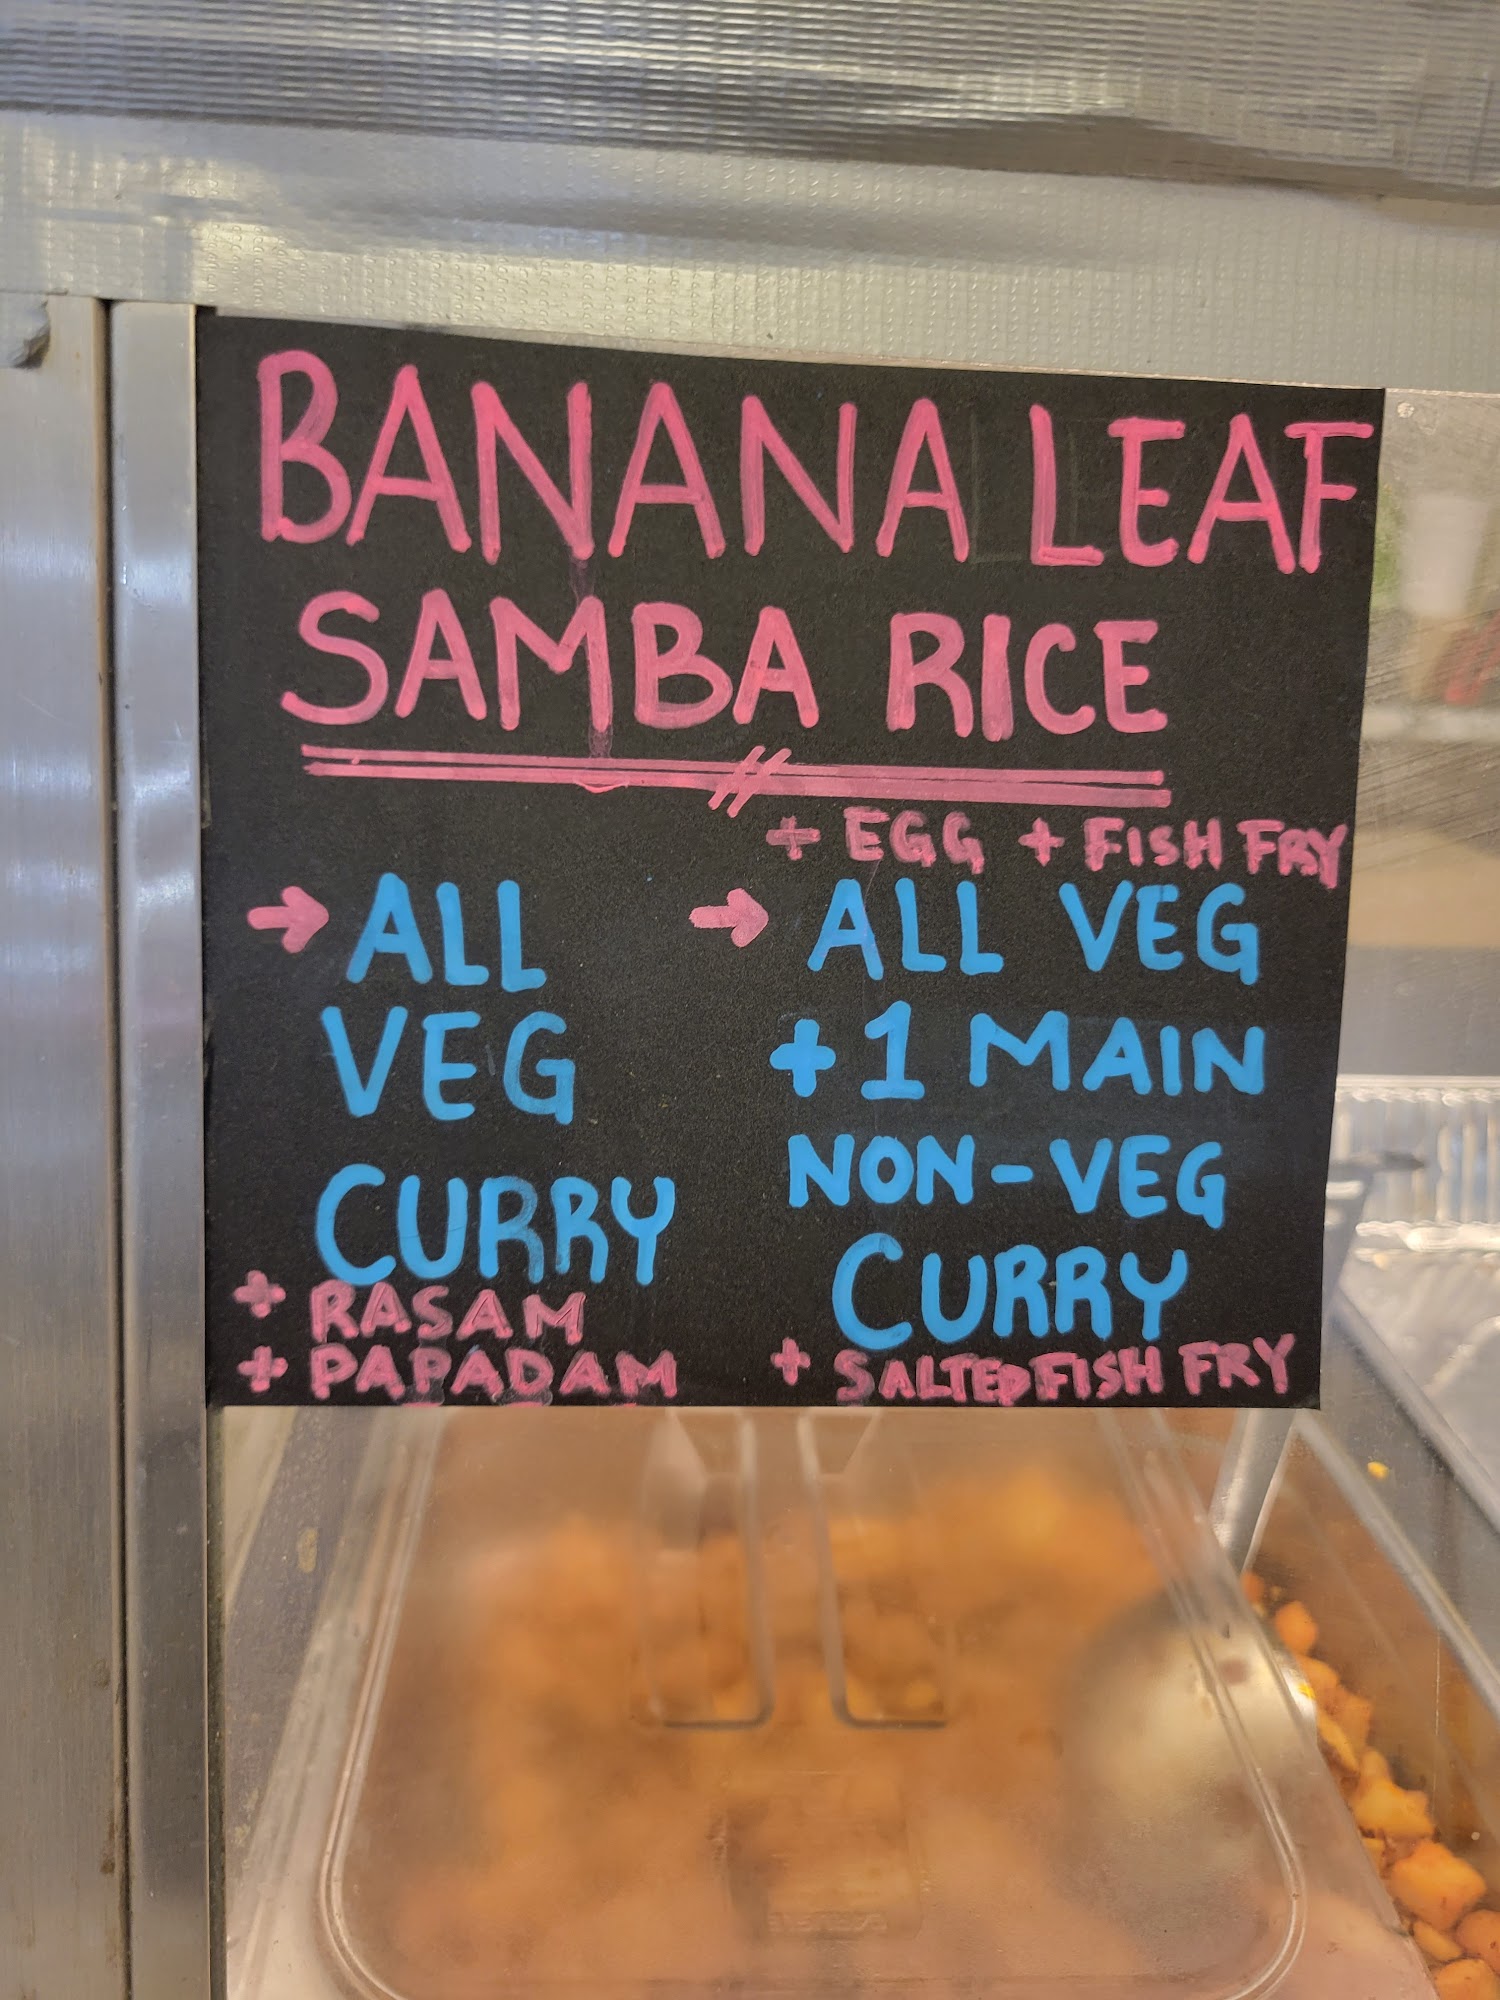 BANANA LEAF
SAMBA RICE
→ ALL
VEG
CURRY
+ RASAM
+ PAPADAM
+ EGG + FISH FRY
→ ALL VEG
+1 MAIN
NON-VEG
CURRY
+ SALTED FISH FRY